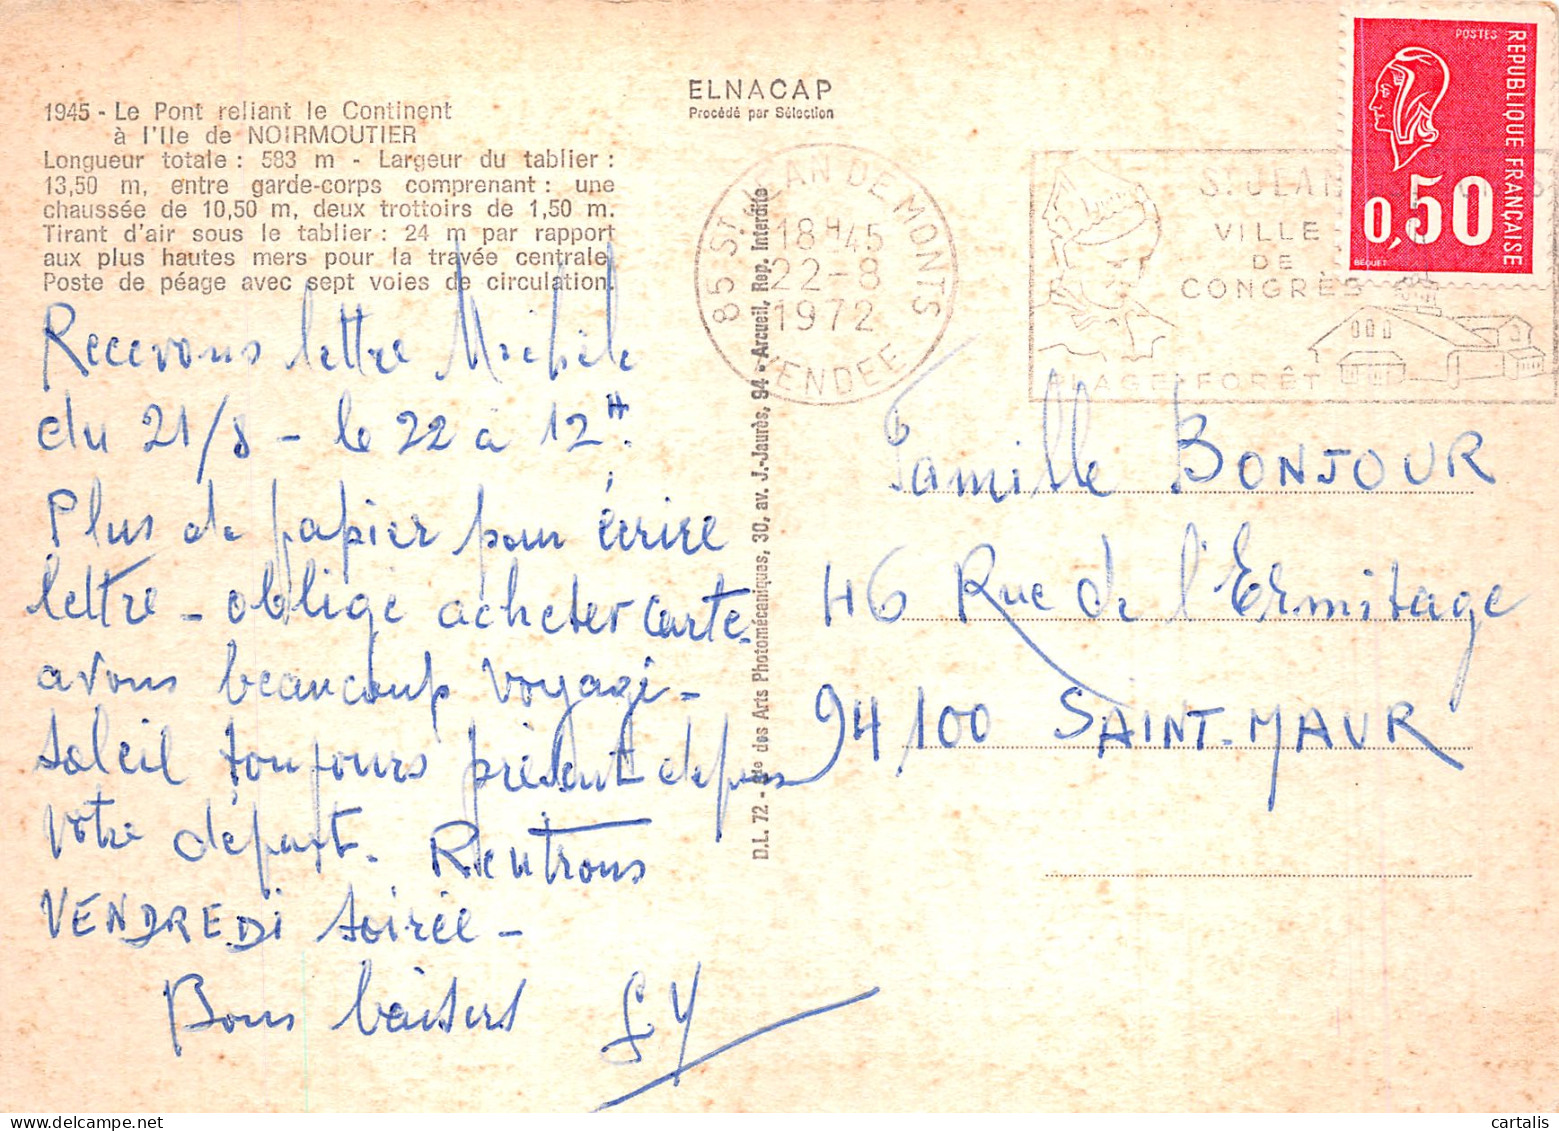 1945 - Le Pont reliant le Continent
à l'Ile de NOIRMOUTIER
Longueur totale : 583 m - Largeur du tablier :
13,50 m, entre garde-corps comprenant : une
chaussée de 10,50 m, deux trottoirs de 1,50 m.
Tirant d'air sous le tablier : 24 m par rapport
aux plus hautes mers pour la travée centrale.
Poste de péage avec sept voies de circulation.
Recevons lettre Michèle
du 21/8 - le 22 à 12H.
Plus de papier pour écrire
lettre - obligé acheter carte.
avons beaucoup voyagé -
soleil toujours présent depuis
votre départ. Rentrons
VENDREDI soirée -
Bons baisers
ELNACAP
Procédé par Sélection
D.L. 72 - Sté des Arts Photomécaniques, 30, av. J.-Jaurès, 94 - Arcueil, Rep. Interdite
85 ST JEAN DE MONTS
18H45
22-8
1972
VENDEE
ST JEAN
VILLE
DE
CONGRÈS
PLAGE-FORÊT
POSTES
REPUBLIQUE FRANÇAISE
0,50
BÉQUET
Famille BONJOUR
46 Rue de l'Ermitage
94100 SAINT-MAUR
cartalis